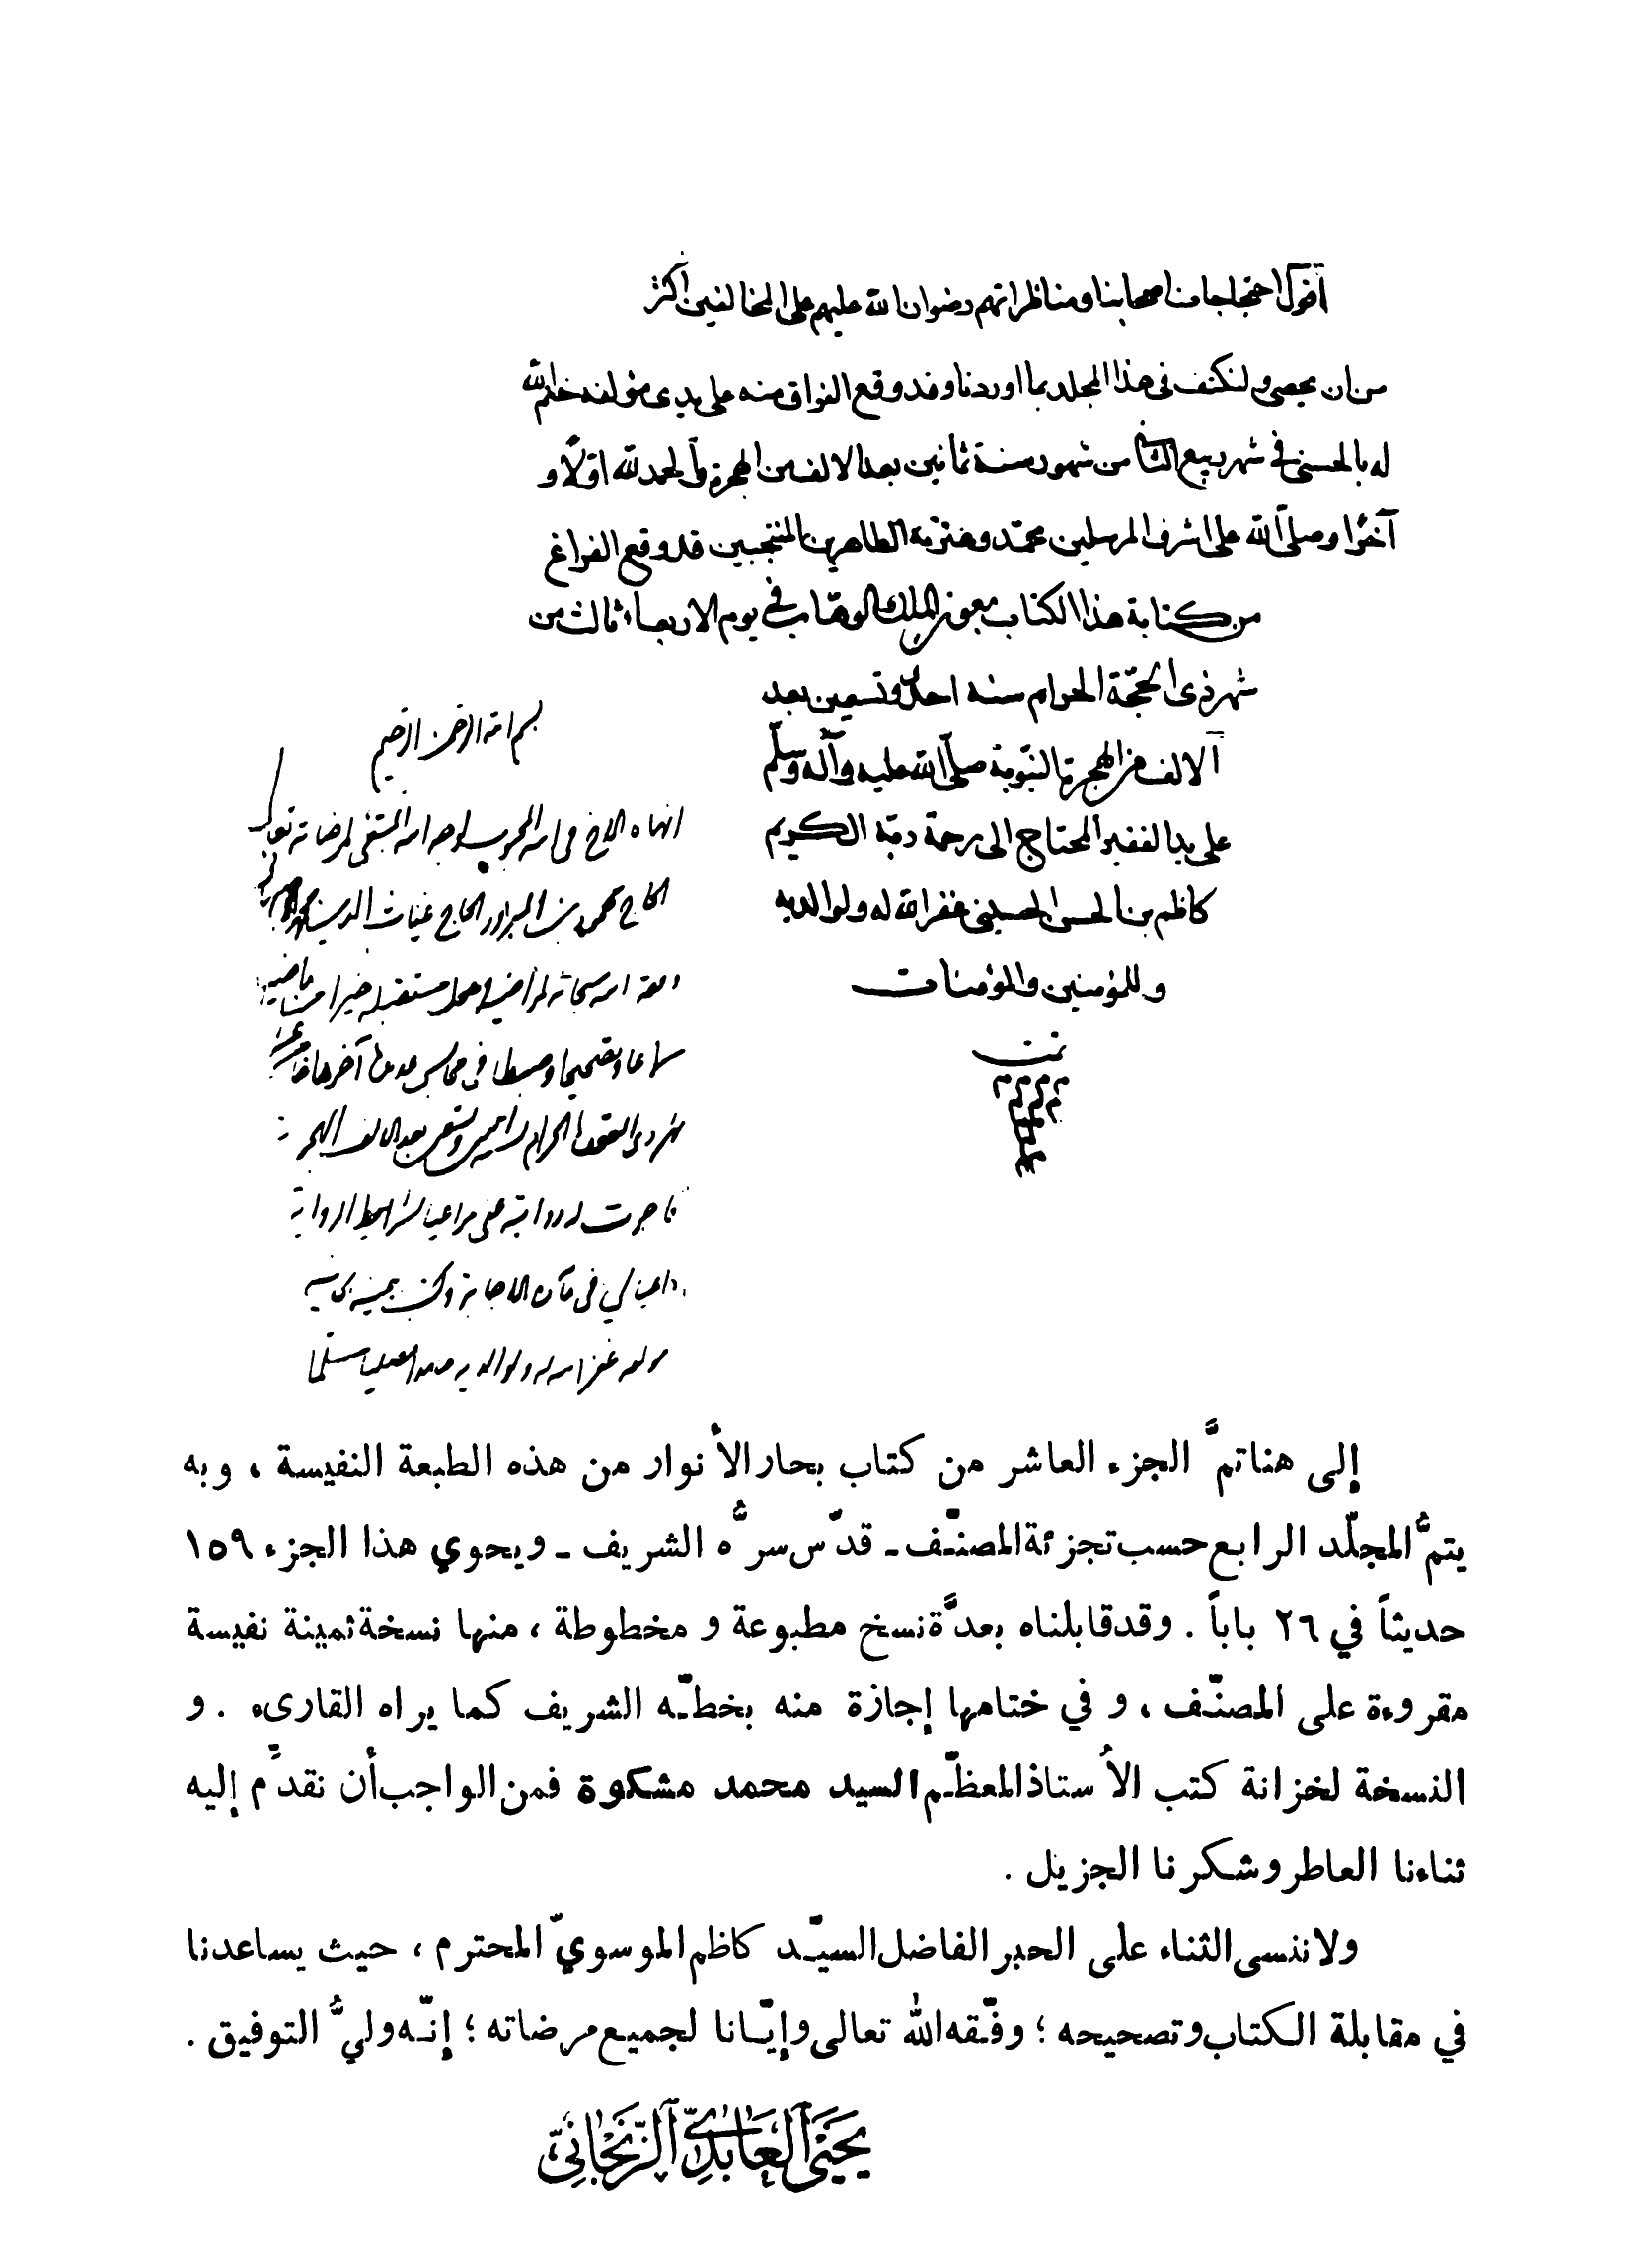 أقول احتجاجات اصحابنا ومناظراتهم رضوان الله عليهم على المخالفين أكثر
من ان يحصى ولنكتف فى هذا المجلد بما اوردنا وقد وقع الفراق منه على يدى مؤلفه ختم الله
له بالحسنى فى شهر ربيع الثانى من شهور سنة ثمانين بعد الالف من الهجرة والحمد لله اوّلاً و
آخراً وصلى الله على اشرف المرسلين محمّد وعترته الطاهرين المنتجبين قد وقع الفراغ
من كتابة هذا الكتاب بعون الملك الوهّاب فى يوم الاربعاء ثالث من
شهر ذى الحجّة الحرام سنه احدى وتسعين بعد
الالف من الهجرة النبّوية صلّى الله عليه وآله وسلّم
على يد الفقير المحتاج الى رحمة ربّه الكريم
كاظم بن الحسن الحسينى غفر الله له ولوالديه
وللمؤمنين والمؤمنات
تمت
بسم الله الرحمن الرحيم
انهاه الاخ فى الله المحبوب لوجه الله المبتغى لمرضاته تعالى
الحاج محمود بن الحاج غياث الدين
وفقه الله سبحانه لمراضيه وجعل مستقبله خيرا من ماضيه
سماعا وتصحيحا وضبطا فى مجالس عديدة آخرها
شهر ذى القعدة الحرام بعد الالف الهجرية
فاجزت له روايته عنى مراعيا لشرائط الرواية
داعيا لى فى مآن الاجابة وكتب بيمينه
مؤلفه غفر الله له ولوالديه حامدا مصليا مسلما
إلى هنا تمَّ الجزء العاشر من كتاب بحار الأنوار من هذه الطبعة النفيسة ، وبه
يتمُّ المجلّد الرابع حسب تجزئة المصنّف ـ قدّس سرُّه الشريف ـ ويحوي هذا الجزء ١٥٩
حديثاً في ٢٦ باباً . وقد قابلناه بعدَّة نسخ مطبوعة و مخطوطة ، منها نسخة ثمينة نفيسة
مقروءة على المصنّف ، و في ختامها إجازة منه بخطّه الشريف كما يراه القارىء . و
النسخة لخزانة كتب الأُستاذ المعظّم السيد محمد مشكوة فمن الواجب أن نقدِّم إليه
ثناءنا العاطر وشكرنا الجزيل .
ولا ننسى الثناء على الحبر الفاضل السيّد كاظم الموسويّ المحترم ، حيث يساعدنا
في مقابلة الكتاب وتصحيحه ؛ وفّقه الله تعالى وإيّانا لجميع مرضاته ؛ إنّه وليُّ التوفيق .
يحيى العابدي الزنجاني